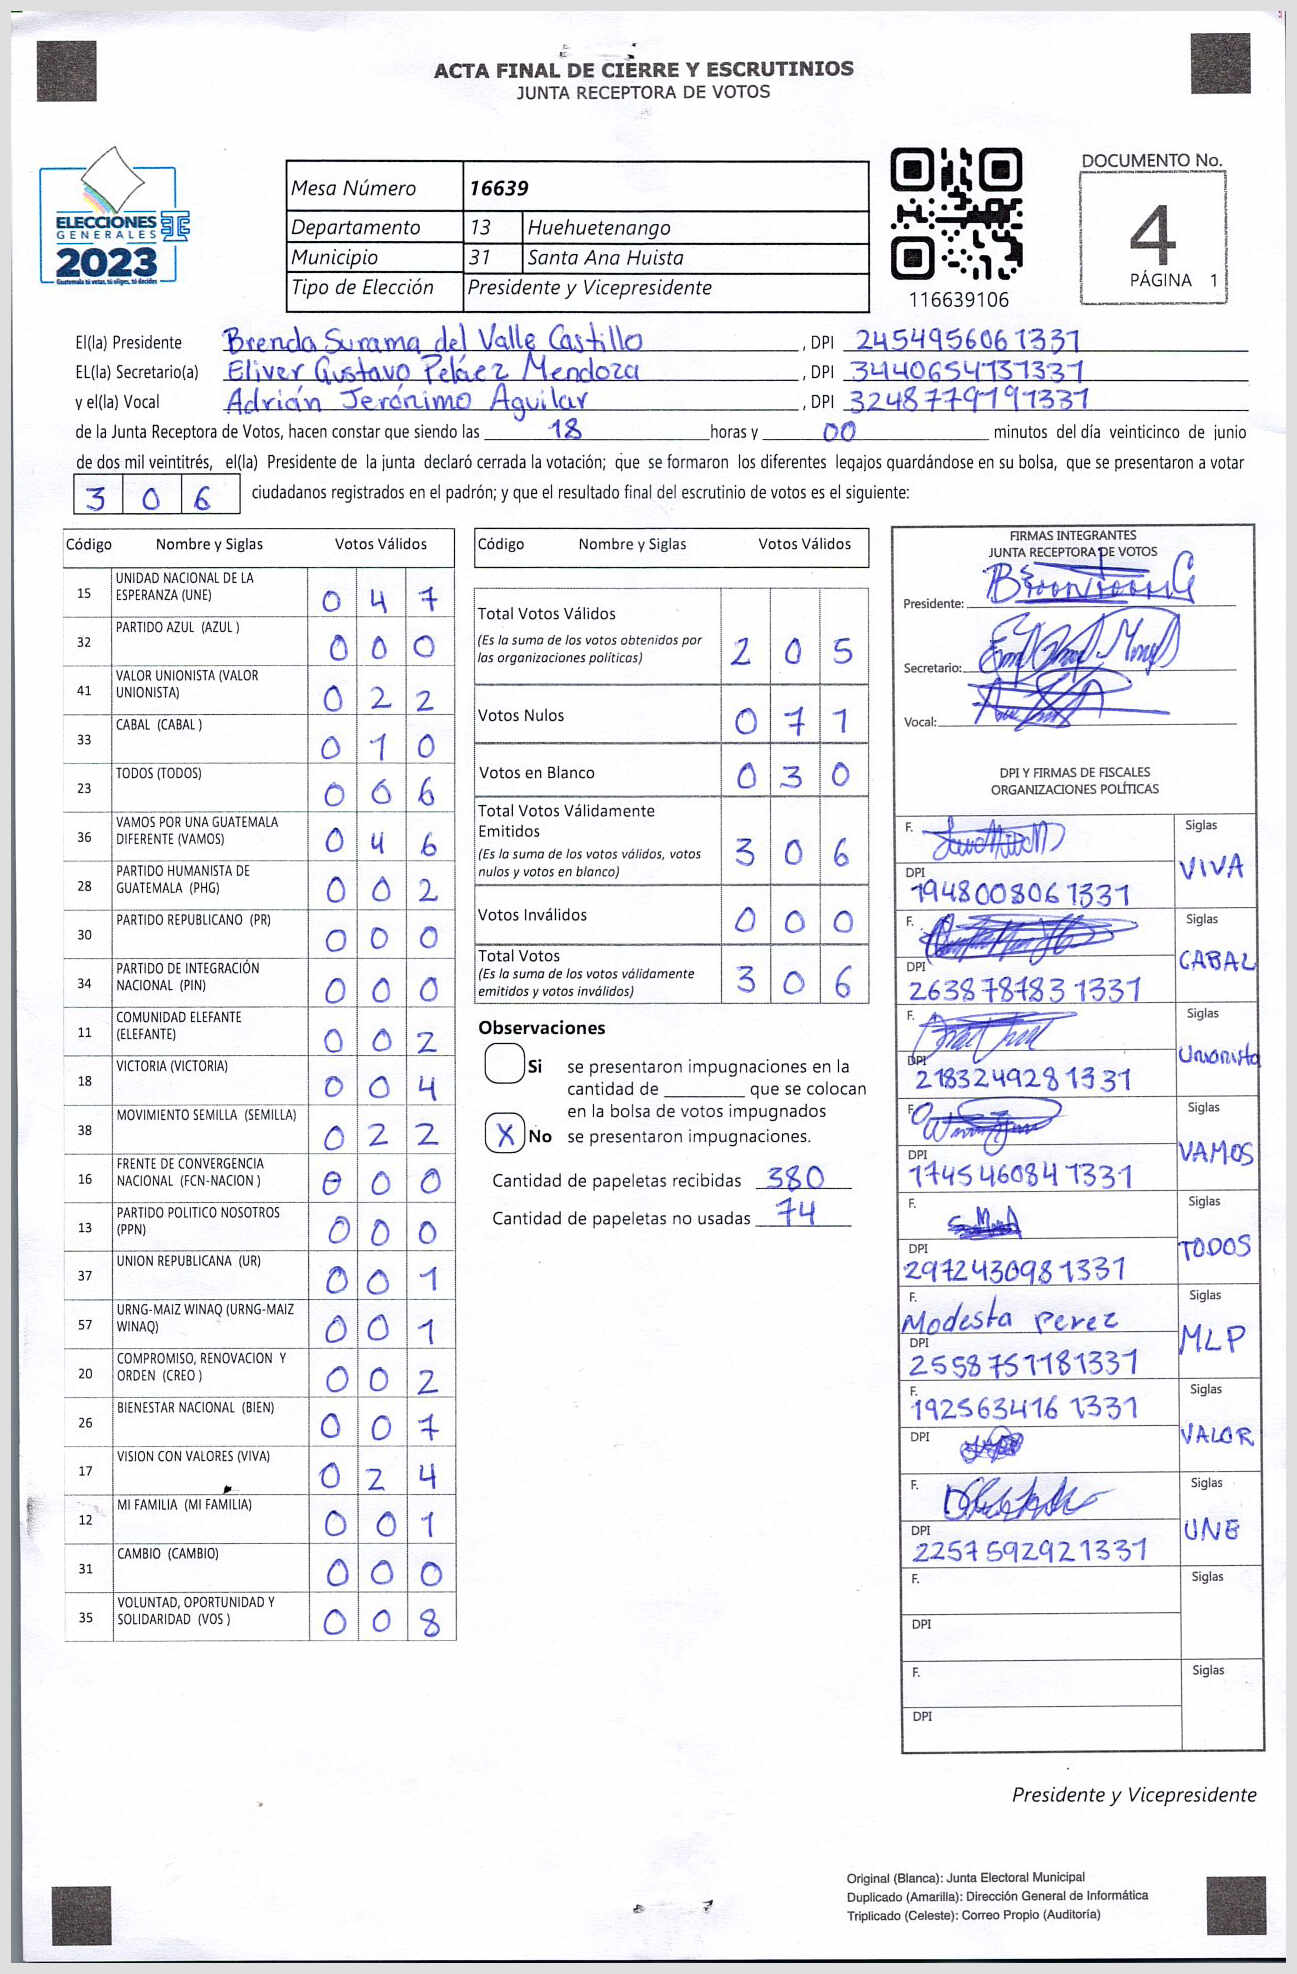 ACTA FINAL DE CIERRE Y ESCRUTINIOS
JUNTA RECEPTORA DE VOTOS
ELECCIONES
GENERALES
2023
Guatemala tú votas, tú eliges, tú decides
Mesa Número 16639
Departamento 13 Huehuetenango
Municipio 31 Santa Ana Huista
Tipo de Elección Presidente y Vicepresidente
116639106
DOCUMENTO No.
4
PÁGINA 1
El(la) Presidente Brenda Surama del Valle Castillo, DPI 2454956061331
EL(la) Secretario(a) Eliver Gustavo Peláez Mendoza, DPI 3440654131331
y el(la) Vocal Adrián Jerónimo Aguilar, DPI 3248779191331
de la Junta Receptora de Votos, hacen constar que siendo las 18 horas y 00 minutos del día veinticinco de junio
de dos mil veintitrés, el(la) Presidente de la junta declaró cerrada la votación; que se formaron los diferentes legajos guardándose en su bolsa, que se presentaron a votar
3 0 6 ciudadanos registrados en el padrón; y que el resultado final del escrutinio de votos es el siguiente:
Código Nombre y Siglas Votos Válidos
15 UNIDAD NACIONAL DE LA ESPERANZA (UNE) 0 4 7
32 PARTIDO AZUL (AZUL ) 0 0 0
41 VALOR UNIONISTA (VALOR UNIONISTA) 0 2 2
33 CABAL (CABAL ) 0 1 0
23 TODOS (TODOS) 0 0 6
36 VAMOS POR UNA GUATEMALA DIFERENTE (VAMOS) 0 4 6
28 PARTIDO HUMANISTA DE GUATEMALA (PHG) 0 0 2
30 PARTIDO REPUBLICANO (PR) 0 0 0
34 PARTIDO DE INTEGRACIÓN NACIONAL (PIN) 0 0 0
11 COMUNIDAD ELEFANTE (ELEFANTE) 0 0 2
18 VICTORIA (VICTORIA) 0 0 4
38 MOVIMIENTO SEMILLA (SEMILLA) 0 2 2
16 FRENTE DE CONVERGENCIA NACIONAL (FCN-NACION ) 0 0 0
13 PARTIDO POLITICO NOSOTROS (PPN) 0 0 0
37 UNION REPUBLICANA (UR) 0 0 1
57 URNG-MAIZ WINAQ (URNG-MAIZ WINAQ) 0 0 1
20 COMPROMISO, RENOVACION Y ORDEN (CREO ) 0 0 2
26 BIENESTAR NACIONAL (BIEN) 0 0 7
17 VISION CON VALORES (VIVA) 0 2 4
12 MI FAMILIA (MI FAMILIA) 0 0 1
31 CAMBIO (CAMBIO) 0 0 0
35 VOLUNTAD, OPORTUNIDAD Y SOLIDARIDAD (VOS ) 0 0 8
Código Nombre y Siglas Votos Válidos
Total Votos Válidos
(Es la suma de los votos obtenidos por las organizaciones políticas) 2 0 5
Votos Nulos 0 7 1
Votos en Blanco 0 3 0
Total Votos Válidamente Emitidos
(Es la suma de los votos válidos, votos nulos y votos en blanco) 3 0 6
Votos Inválidos 0 0 0
Total Votos
(Es la suma de los votos válidamente emitidos y votos inválidos) 3 0 6
Observaciones
Si se presentaron impugnaciones en la
cantidad de ________ que se colocan
en la bolsa de votos impugnados
X No se presentaron impugnaciones.
Cantidad de papeletas recibidas 380
Cantidad de papeletas no usadas 74
FIRMAS INTEGRANTES
JUNTA RECEPTORA DE VOTOS
Presidente:
Secretario:
Vocal:
DPI Y FIRMAS DE FISCALES
ORGANIZACIONES POLÍTICAS
F. Siglas
VIVA
DPI
1948008061331
F. Siglas
CABAL
DPI
2638787831331
F. Siglas
Unionista
DPI
2183249281331
F. Siglas
VAMOS
DPI
1745460841331
F. Siglas
TODOS
DPI
2972430981331
F. Siglas
Modesta Perez
MLP
DPI
2558751181331
F. Siglas
1925634161331
VALOR
DPI
F. Siglas
UNE
DPI
2257592921331
F. Siglas
DPI
F. Siglas
DPI
Presidente y Vicepresidente
Original (Blanca): Junta Electoral Municipal
Duplicado (Amarilla): Dirección General de Informática
Triplicado (Celeste): Correo Propio (Auditoría)